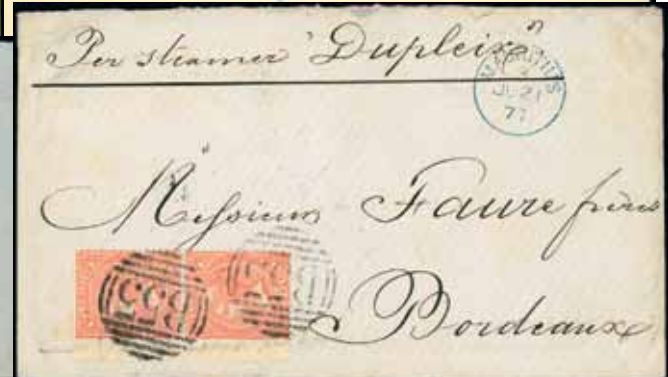 Per steamer "Dupleix"
MAURITIUS
JU 21
77
Messieurs Faure frères
B53 B53
Bordeaux